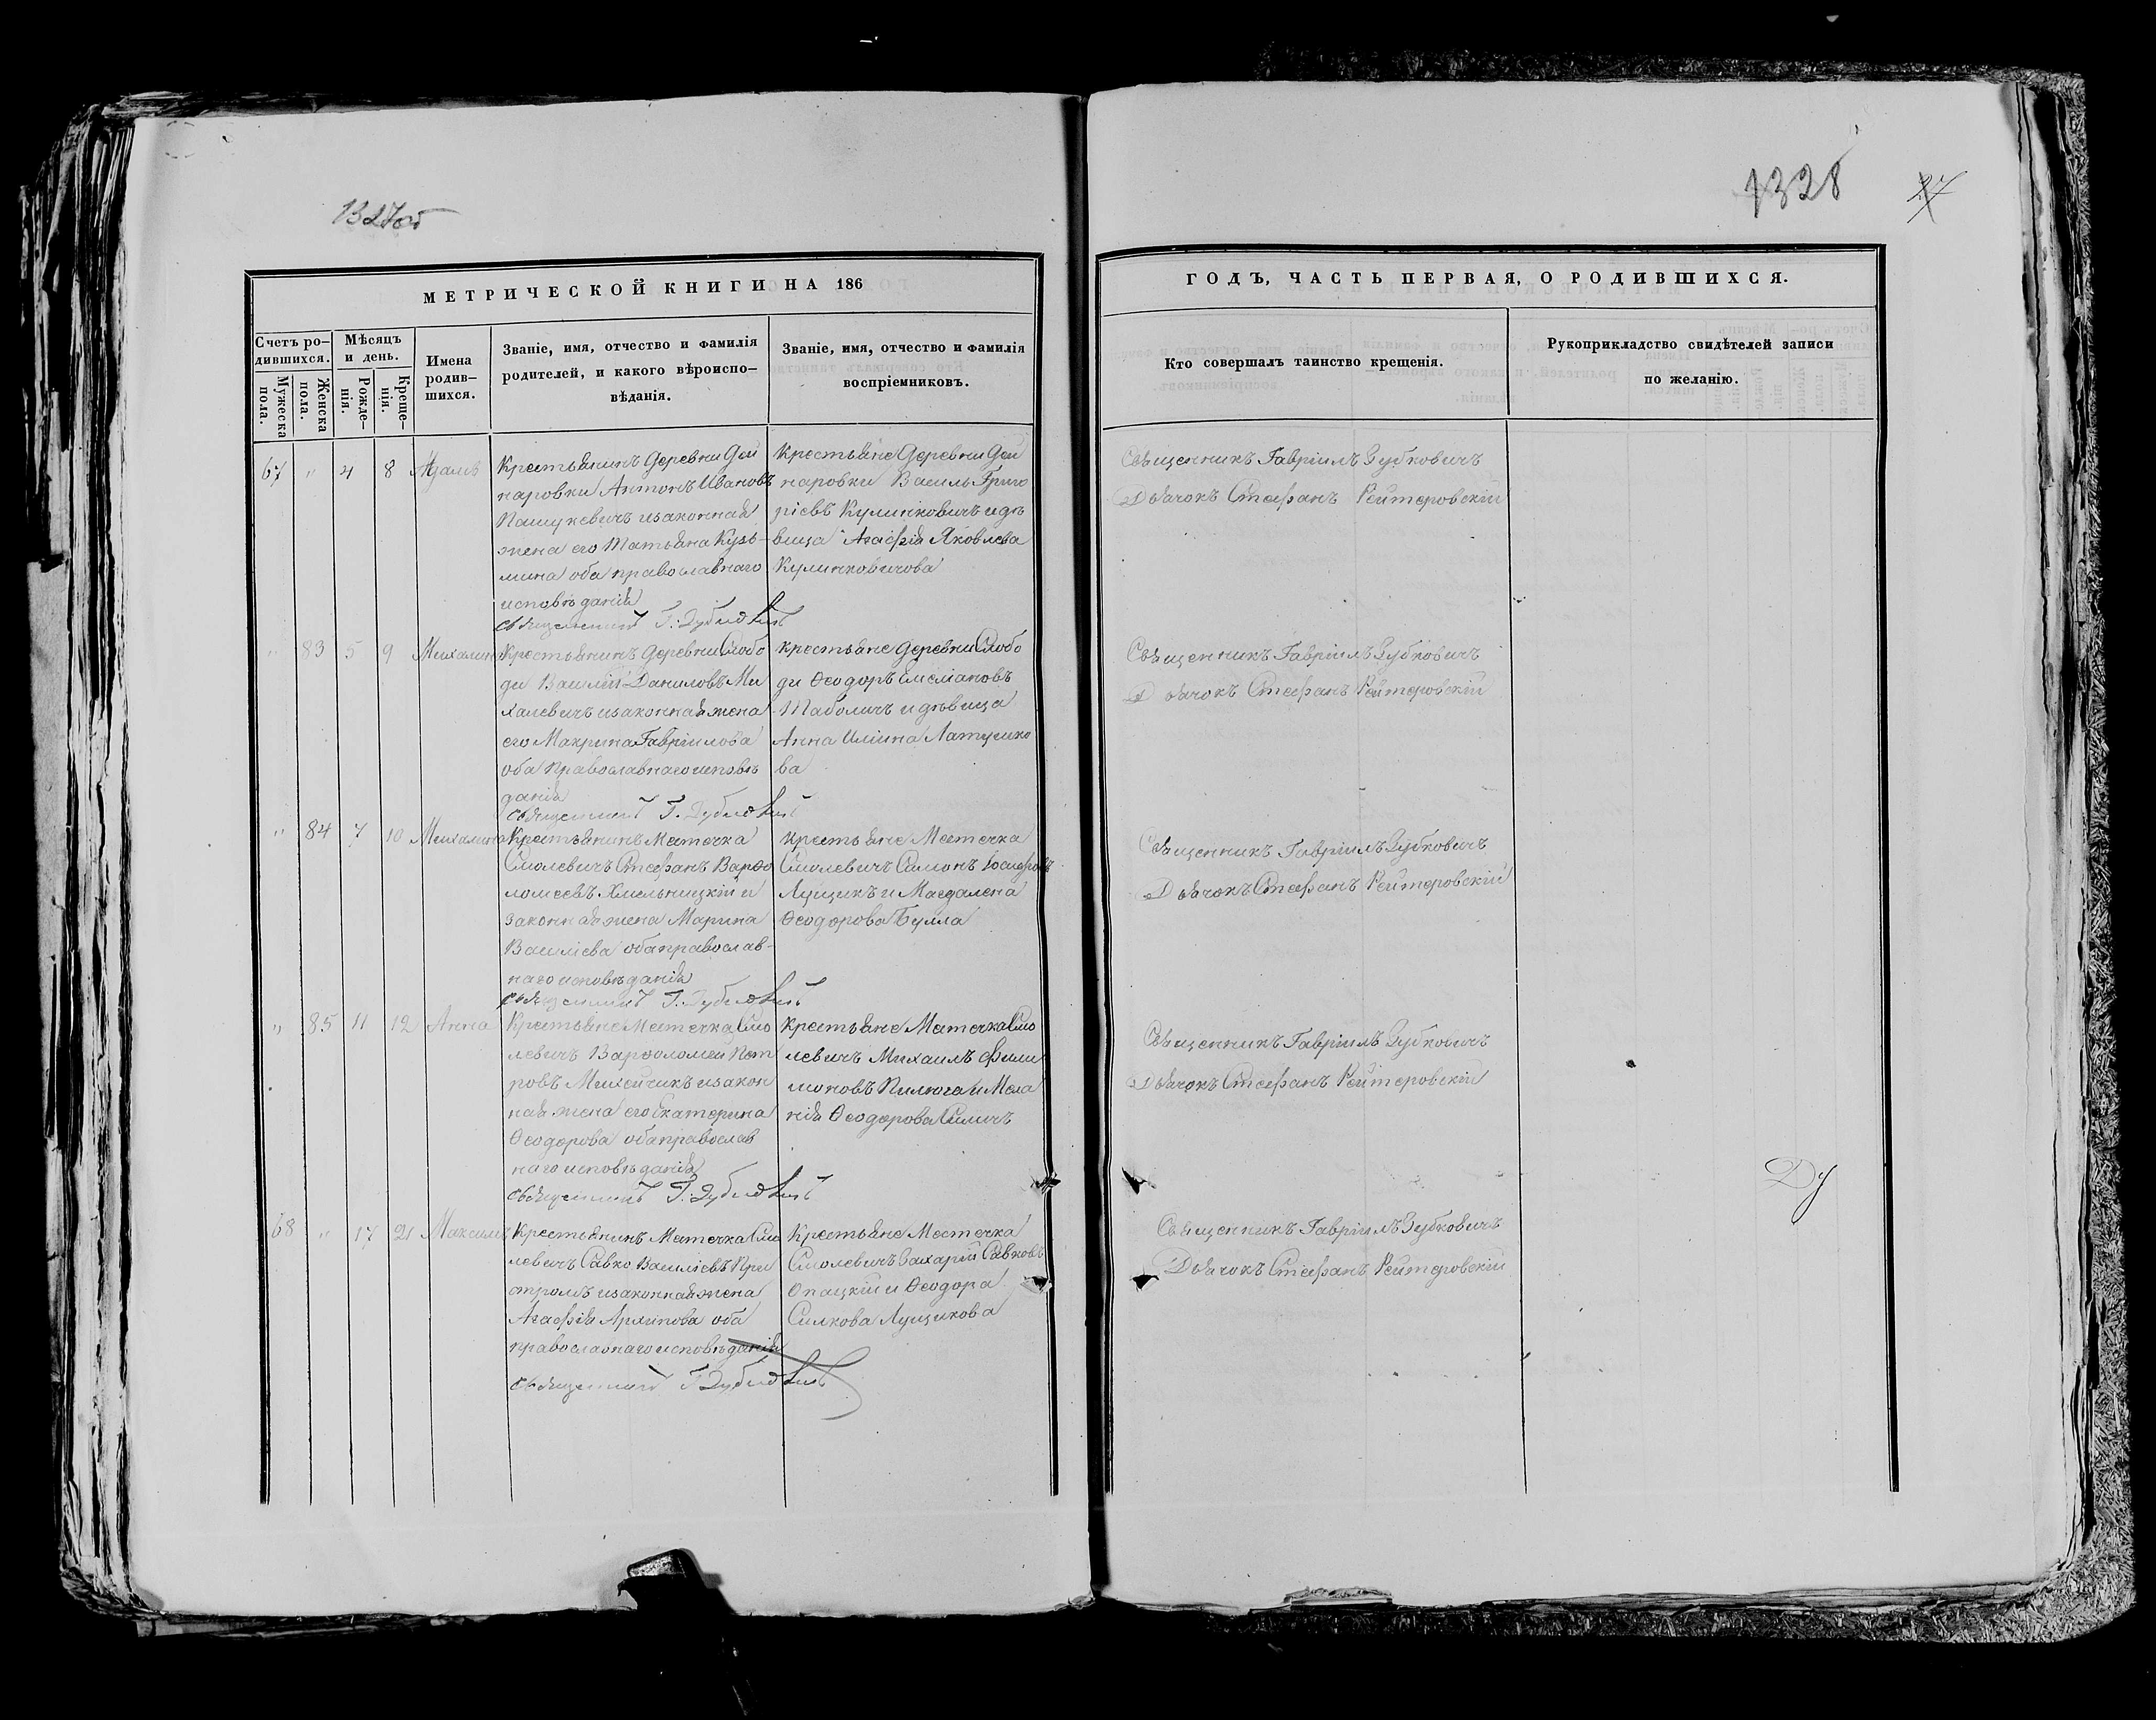 1327об
1328
27
МЕТРИЧЕСКОЙ КНИГИ НА 186
ГОДЪ, ЧАСТЬ ПЕРВАЯ, О РОДИВШИХСЯ.
Счетъ ро-
дившихся.
Мужеска
пола.
Женска
пола.
Мѣсяцъ
и день.
Рожде-
нія.
Креще-
нія.
Имена
родив-
шихся.
Званіе, имя, отчество и фамилія
родителей, и какого вѣроиспо-
вѣданія.
Званіе, имя, отчество и фамилія
воспріемниковъ.
Кто совершалъ таинство крещенія.
Рукоприкладство свидѣтелей записи
по желанію.
67 " 4 8 Адамъ
Крестьянинъ деревни Дѣй
наровки Антонъ Ивановъ
Пашукевичъ и законная
жена его Татьяна Кузь-
мина оба православнаго
исповѣданія
священникъ Г. Зубковичъ
Крестьяне деревни Дѣй
наровки Василь Григо
ріевъ Кулинковичъ и дѣ
вица Агафія Яковлева
Кулинковичова
Священникъ Гавріилъ Зубковичъ
Дьячокъ Стефанъ Рейтеровскій
" 83 5 9 Михалина
Крестьянинъ деревни Слобо
ди Василій Даниловъ Ми
халевичъ и законная жена
его Макрина Гавріилова
оба православнаго исповѣ
данія
священникъ Г. Зубковичъ
Крестьяне деревни Слобо
ди Ѳеодоръ Емеліановъ
Таболичъ и дѣвица
Анна Иліина Латушко
ва
Священникъ Гавріилъ Зубковичъ
Дьячокъ Стефанъ Рейтеровскій
" 84 7 10 Михалина
Крестьянинъ Местечка
Смолевичъ Стефанъ Варѳо
ломеевъ Хмельницкій и
законная жена Марина
Василіева оба православ-
наго исповѣданія
священникъ Г. Зубковичъ
Крестьяне Местечка
Смолевичъ Симонъ Іосифовъ
Лущикъ и Магдалена
Ѳеодорова Булла
Священникъ Гавріилъ Зубковичъ
Дьячокъ Стефанъ Рейтеровскій
" 85 11 12 Анна
Крестьяне Местечка Смо
левичъ Варѳоломей Пет
ровъ Михейчикъ и закон
ная жена его Екатерина
Ѳеодорова оба православ
наго исповѣданія
священникъ Г. Зубковичъ
Крестьяне Местечка Смо
левичъ Михаилъ Фили
моновъ Пилюга и Мела
нія Ѳеодорова Силичъ
Священникъ Гавріилъ Зубковичъ
Дьячокъ Стефанъ Рейтеровскій
68 " 17 21 Максимъ
Крестьянинъ Местечка Смо
левичъ Савко Василіевъ При
стромъ и законная жена
Агафія Архипова оба
православнаго исповѣданія
священникъ Г. Зубковичъ
Крестьяне Местечка
Смолевичъ Захарій Савковъ
Опацкій и Ѳеодора
Силкова Лущикова
Священникъ Гавріилъ Зубковичъ
Дьячокъ Стефанъ Рейтеровскій
Ду